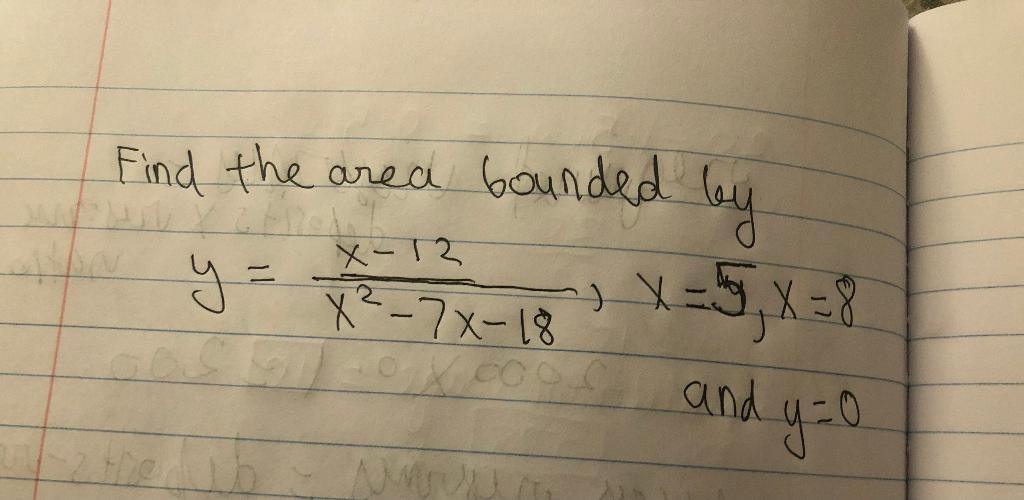 Find the area bounded by
y = x-12 / x²-7x-18, x=5, x=8
and y=0